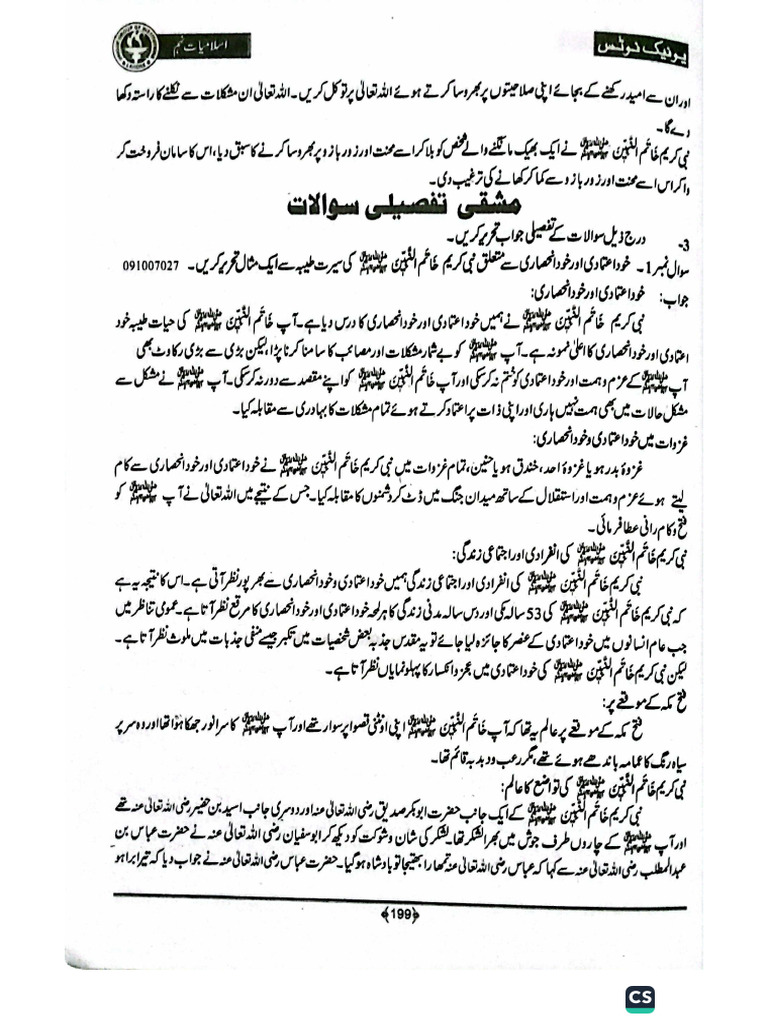 یونیک نوٹس
اسلامیات نہم
اور ان سے امید رکھنے کے بجائے اپنی صلاحیتوں پر بھروسا کرتے ہوئے اللہ تعالیٰ پر توکل کریں۔ اللہ تعالیٰ ان مشکلات سے نکلنے کا راستہ دکھا
دے گا۔
نبی کریم خَاتَمُ النَّبِیّٖنَ ﷺ نے ایک بھیک مانگنے والے شخص کو بلا کر اسے محنت اور زور بازو پر بھروسا کرنے کا سبق دیا، اس کا سامان فروخت کر
وا کر اس اسے محنت اور زور بازو سے کما کر کھانے کی ترغیب دی۔
مشقی تفصیلی سوالات
3- درج ذیل سوالات کے تفصیلی جواب تحریر کریں۔
سوال نمبر 1۔ خود اعتمادی اور خود انحصاری سے متعلق نبی کریم خَاتَمُ النَّبِیّٖنَ ﷺ کی سیرت طیبہ سے ایک مثال تحریر کریں۔ 091007027
جواب: خود اعتمادی اور خود انحصاری:
نبی کریم خَاتَمُ النَّبِیّٖنَ ﷺ نے ہمیں خود اعتمادی اور خود انحصاری کا درس دیا ہے۔ آپ خَاتَمُ النَّبِیّٖنَ ﷺ کی حیات طیبہ خود
اعتمادی اور خود انحصاری کا اعلیٰ نمونہ ہے۔ آپ ﷺ کو بے شمار مشکلات اور مصائب کا سامنا کرنا پڑا، لیکن بڑی سے بڑی رکاوٹ بھی
آپ ﷺ کے عزم و ہمت اور خود اعتمادی کو ختم نہ کر سکی اور آپ خَاتَمُ النَّبِیّٖنَ ﷺ کو اپنے مقصد سے دور نہ کر سکی۔ آپ ﷺ نے مشکل سے
مشکل حالات میں بھی ہمت نہیں ہاری اور اپنی ذات پر اعتماد کرتے ہوئے تمام مشکلات کا بہادری سے مقابلہ کیا۔
غزوات میں خود اعتمادی و خود انحصاری:
غزوۂ بدر ہو یا غزوۂ احد، خندق ہو یا حنین، تمام غزوات میں نبی کریم خَاتَمُ النَّبِیّٖنَ ﷺ نے خود اعتمادی اور خود انحصاری سے کام
لیتے ہوئے عزم و ہمت اور استقلال کے ساتھ میدان جنگ میں ڈٹ کر دشمنوں کا مقابلہ کیا۔ جس کے نتیجے میں اللہ تعالیٰ نے آپ ﷺ کو
فتح و کام رانی عطا فرمائی۔
نبی کریم خَاتَمُ النَّبِیّٖنَ ﷺ کی انفرادی اور اجتماعی زندگی:
نبی کریم خَاتَمُ النَّبِیّٖنَ ﷺ کی انفرادی اور اجتماعی زندگی ہمیں خود اعتمادی و خود انحصاری سے بھرپور نظر آتی ہے۔ اس کا نتیجہ یہ ہے
کہ نبی کریم خَاتَمُ النَّبِیّٖنَ ﷺ کی 53 سالہ مکی اور دس سالہ مدنی زندگی کا ہر لمحہ خود اعتمادی اور خود انحصاری کا مرقع نظر آتا ہے۔ عمومی تناظر میں
جب عام انسانوں میں خود اعتمادی کے عنصر کا جائزہ لیا جائے تو یہ مقدس جذبہ بعض شخصیات میں تکبر جیسے منفی جذبات میں ملوث نظر آتا ہے۔
لیکن نبی کریم خَاتَمُ النَّبِیّٖنَ ﷺ کی خود اعتمادی میں عجز و انکسار کا پہلو نمایاں نظر آتا ہے۔
فتح مکہ کے موقعے پر:
فتح مکہ کے موقعے پر عالم یہ تھا کہ آپ خَاتَمُ النَّبِیّٖنَ ﷺ اپنی اونٹنی قصوا پر سوار تھے اور آپ ﷺ کا سر انور جھکا ہوا تھا اور وہ سر پر
سیاہ رنگ کا عمامہ باندھے ہوئے تھے، مگر رعب و دبدبہ قائم تھا۔
نبی کریم خَاتَمُ النَّبِیّٖنَ ﷺ کی تواضع کا عالم:
نبی کریم خَاتَمُ النَّبِیّٖنَ ﷺ کے ایک جانب حضرت ابوبکر صدیق رضی اللہ تعالیٰ عنہ اور دوسری جانب اسید بن حضیر رضی اللہ تعالیٰ عنہ تھے
اور آپ ﷺ کے چاروں طرف جوش میں بھرا لشکر تھا۔ لشکر کی شان و شوکت کو دیکھ کر ابوسفیان رضی اللہ تعالیٰ عنہ نے حضرت عباس بن
عبدالمطلب رضی اللہ تعالیٰ عنہ سے کہا کہ عباس رضی اللہ تعالیٰ عنہ تمھارا بھتیجا تو بادشاہ ہو گیا۔ حضرت عباس رضی اللہ تعالیٰ عنہ نے جواب دیا کہ تیرا برا ہو
﴿199﴾
CS